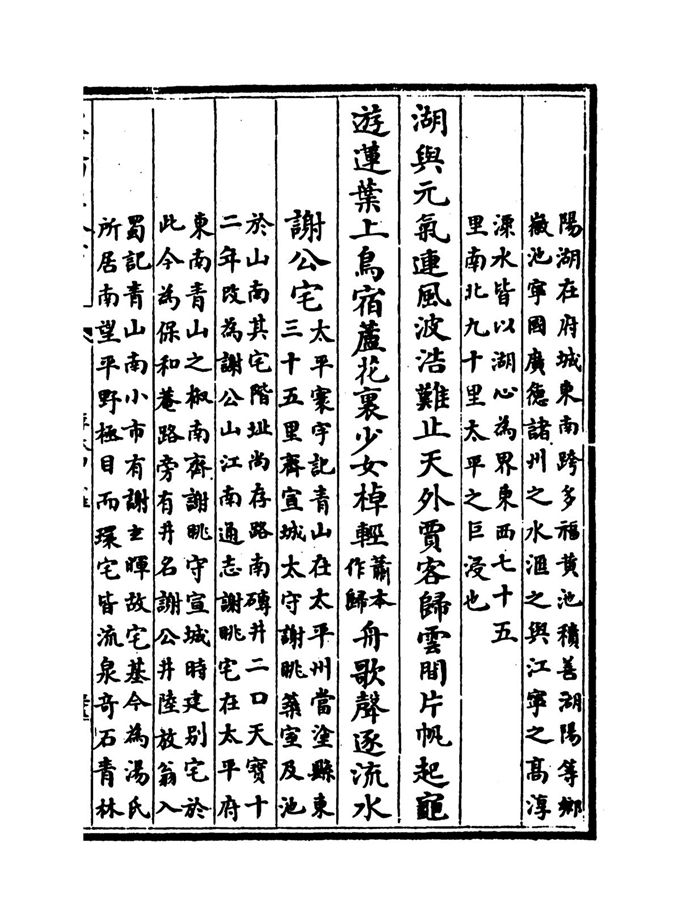 陽湖在府城東南跨多福黃池積善湖陽等鄉
徽池寧國廣徳諸州之水滙之與江寧之髙淳
溧水皆以湖心為界東西七十五
里南北九十里太平之巨浸也
湖與元氣連風波浩難止天外賈客歸雲間片帆起龜
遊蓮葉上鳥宿蘆花裏少女棹輕蕭本作歸舟歌聲逐流水
謝公宅太平寰宇記青山在太平州當塗縣東
三十五里齊宣城太守謝眺築室及池
於山南其宅階址尚存路南磚井二口天寶十
二年改為謝公山江南通志謝眺宅在太平府
東南青山之椒南齊謝眺守宣城時建別宅於
此今為保和菴路旁有井名謝公井陸放翁入
蜀記青山南小市有謝玄暉故宅基今為湯氏
所居南望平野極目而環宅皆流泉奇石青林